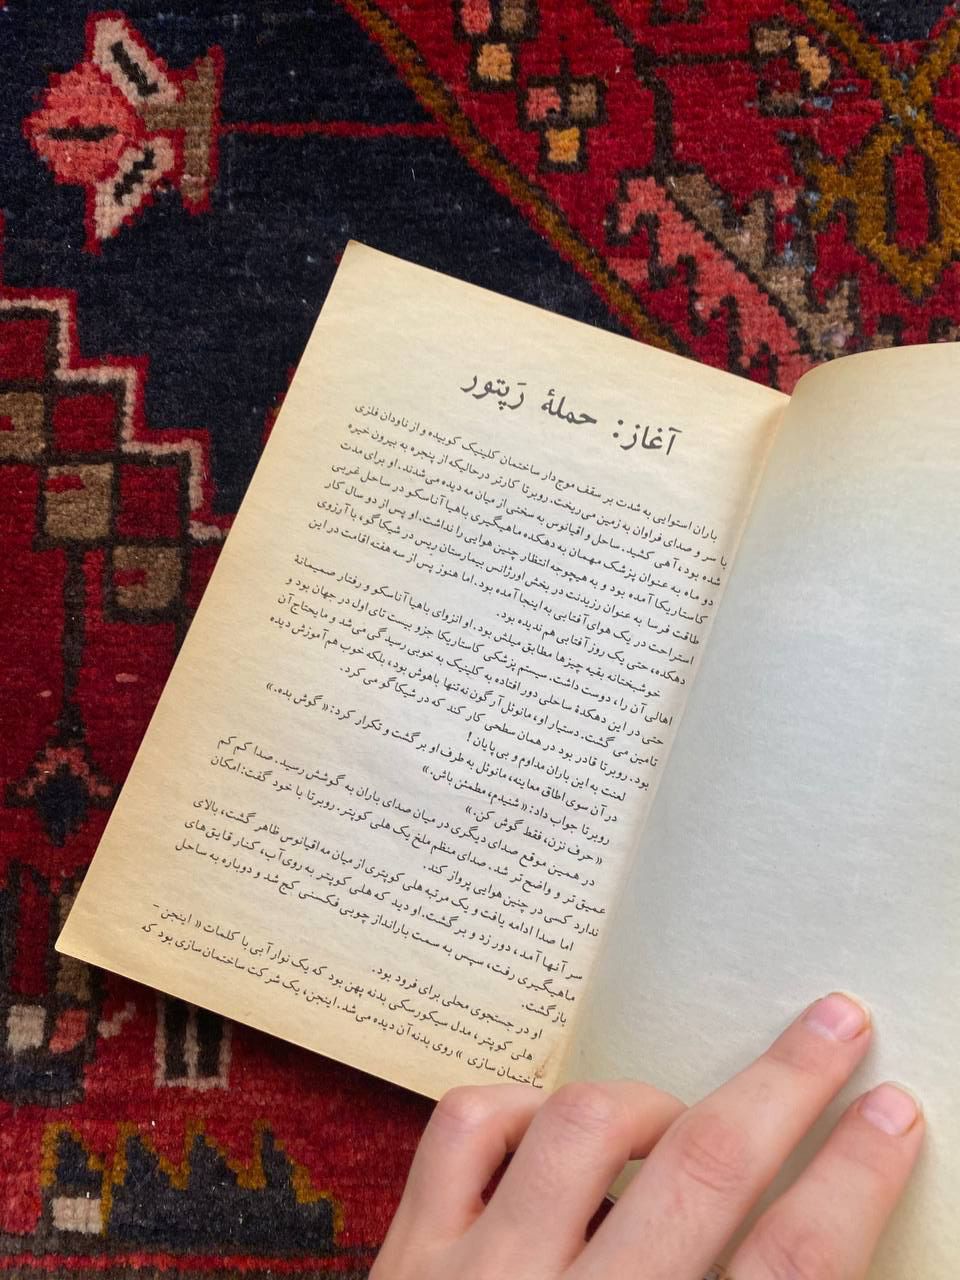 آغاز: حملهٔ رَپتور
باران استوایی به شدت بر سقف موج‌دار ساختمان کلینیک کوبیده و از ناودان فلزی
با سر و صدای فراوان به زمین می‌ریخت. روبرتا کارتر در حالیکه از پنجره به بیرون خیره
شده بود، آهی کشید. ساحل و اقیانوس به سختی از میان مه دیده می‌شدند. او برای مدت
دو ماه به عنوان پزشک مهمان به دهکده ماهیگیری باهیا آناسکو در ساحل غربی
کاستاریکا آمده بود و به هیچوجه انتظار چنین هوایی را نداشت. او پس از دو سال کار
طاقت فرسا به عنوان رزیدنت در بخش اورژانس بیمارستان ریس در شیکاگو، با آرزوی
استراحت در یک هوای آفتابی به اینجا آمده بود. اما هنوز پس از سه هفته اقامت در این
دهکده، حتی یک روز آفتابی هم ندیده بود.
خوشبختانه بقیه چیزها مطابق میلش بود. او انزوای باهیا آناسکو و رفتار صمیمانهٔ
اهالی آن را، دوست داشت. سیستم پزشکی کاستاریکا جزو بیست تای اول در جهان بود و
حتی در این دهکدهٔ ساحلی دور افتاده به کلینیک به خوبی رسیدگی می‌شد و مایحتاج آن
تامین می گشت. دستیار او، مانوئل آرگون نه تنها باهوش بود، بلکه خوب هم آموزش دیده
بود. روبرتا قادر بود در همان سطحی کار کند که در شیکاگو می کرد.
لعنت به این باران مداوم و بی‌پایان!
در آن سوی اطاق معاینه، مانوئل به طرف او برگشت و تکرار کرد: «گوش بده.»
روبرتا جواب داد: «شنیدم، مطمئن باش.»
«حرف نزن، فقط گوش کن.»
در همین موقع صدای دیگری در میان صدای باران به گوشش رسید. صدا کم کم
عمیق تر و واضح تر شد. صدای منظم ملخ یک هلی کوپتر. روبرتا با خود گفت: امکان
ندارد کسی در چنین هوایی پرواز کند.
اما صدا ادامه یافت و یک مرتبه هلی کوپتری از میان مه اقیانوس ظاهر گشت، بالای
سر آنها آمد، دور زد و برگشت. او دید که هلی کوپتر به روی آب، کنار قایق‌های
ماهیگیری رفت، سپس به سمت بارانداز چوبی فکسنی کج شد و دوباره به ساحل
بازگشت.
او در جستجوی محلی برای فرود بود.
هلی کوپتر، مدل سیکورسکی بدنه پهن بود که یک نوار آبی با کلمات «اینجن -
ساختمان سازی» روی بدنه آن دیده می‌شد. اینجن، یک شرکت ساختمان سازی بود که